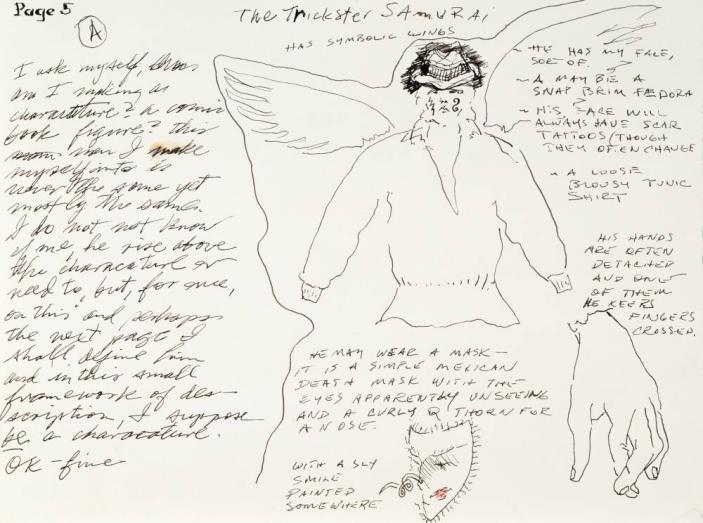 Page 5
A
The Trickster SAMURAi
HAS SYMBOLIC WINGS
I ask myself,
am I making a
characature? a comic
book figure? this
man I make
myself into is
never the same yet
mostly the same.
I do not not know
if me, he rise above
the characature or
need to, but, for once,
on this and perhaps
the next page I
shall define him
and in this small
framework of des-
cription, I suppose
be a characature.
OK - fine
~ HE HAS MY FACE,
SORT OF.
~ A MAY BE A
SNAP BRIM FEDORA
?
~ HIS FACE WILL
ALWAYS HAVE SCAR
TATTOOS/THOUGH
THEY OFTEN CHANGE
~ A LOOSE
BLOUSY TUNIC
SHIRT
HIS HANDS
ARE OFTEN
DETACHED
AND ONE
OF THEM
HE KEEPS
FINGERS
CROSSED.
HE MAY WEAR A MASK —
IT IS A SIMPLE MEXICAN
DEATH MASK WITH THE
EYES APPARENTLY UNSEEING
AND A CURLY Q THORN FOR
A NOSE.
WITH A SLY
SMILE
PAINTED
SOMEWHERE